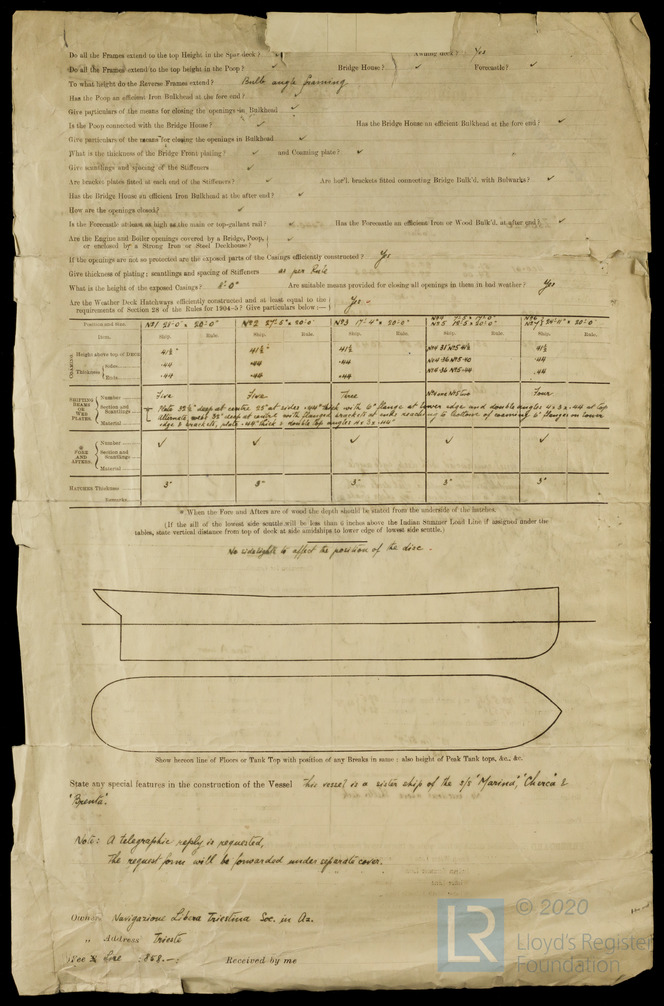 Do all the Frames extend to the top Height in the Spar deck? Awning deck? Yes
Do all the Frames extend to the top height in the Poop? ✓ Bridge House? ✓ Forecastle? ✓
To what height do the Reverse Frames extend? Bulb angle framing
Has the Poop an efficient Iron Bulkhead at the fore end? ✓
Give particulars of the means for closing the openings in Bulkhead ✓
Is the Poop connected with the Bridge House? ✓ Has the Bridge House an efficient Bulkhead at the fore end? ✓
Give particulars of the means for closing the openings in Bulkhead ✓
What is the thickness of the Bridge Front plating? ✓ and Coaming plate? ✓
Give scantlings and spacing of the Stiffeners ✓
Are bracket plates fitted at each end of the Stiffeners? ✓ Are hor'l. brackets fitted connecting Bridge Bulk'd. with Bulwarks? ✓
Has the Bridge House an efficient Iron Bulkhead at the after end? ✓
How are the openings closed? ✓
Is the Forecastle at least as high as the main or top-gallant rail? ✓ Has the Forecastle an efficient Iron or Wood Bulk'd. at after end? ✓
Are the Engine and Boiler openings covered by a Bridge, Poop,
or enclosed by a Strong Iron or Steel Deckhouse? ✓
If the openings are not so protected are the exposed parts of the Casings efficiently constructed? Yes
Give thickness of plating; scantlings and spacing of Stiffeners as per Rule
What is the height of the exposed Casings? 8'.0" Are suitable means provided for closing all openings in them in bad weather? Yes
Are the Weather Deck Hatchways efficiently constructed and at least equal to the
requirements of Section 28 of the Rules for 1904-5? Give particulars below:— Yes
Position and Size. No 1 No 2 No 3 17'.4" x 20'.0 No 4 No 5 No 6
Ship. Rule. Ship. Rule. Ship. Rule. Ship. Rule. Ship. Rule.
COAMING Height above top of DECK 41½" 41½" 41½ 41½
Thickness Sides .44 .44 .44 .44
Ends .44 .44 .44 .44
SHIFTING BEAMS OR WEB PLATES. Number Five Five Three Four
Section and Scantlings
Material
* FORE AND AFTERS. Number ✓ ✓ ✓ ✓ ✓
Section and Scantlings
Material
HATCHES Thickness 3" 3" 3" 3" 3"
Remarks
* When the Fore and Afters are of wood the depth should be stated from the underside of the hatches.
(If the sill of the lowest side scuttle will be less than 6 inches above the Indian Summer Load Line if assigned under the
tables, state vertical distance from top of deck at side amidships to lower edge of lowest side scuttle.)
No sidelights to affect the position of the disc.
Show hereon line of Floors or Tank Top with position of any Breaks in same; also height of Peak Tank tops, &c., &c.
State any special features in the construction of the Vessel This vessel is a sister ship of the s/s "Marina," "Cherca" &
"Brenta".
Note: A telegraphic reply is requested,
The request form will be forwarded under separate cover.
Owner Navigazione Libera Triestina Soc. in Az.
„ Address Trieste
Fee Lire :858.—: Received by me
LR © 2020
Lloyd's Register
Foundation